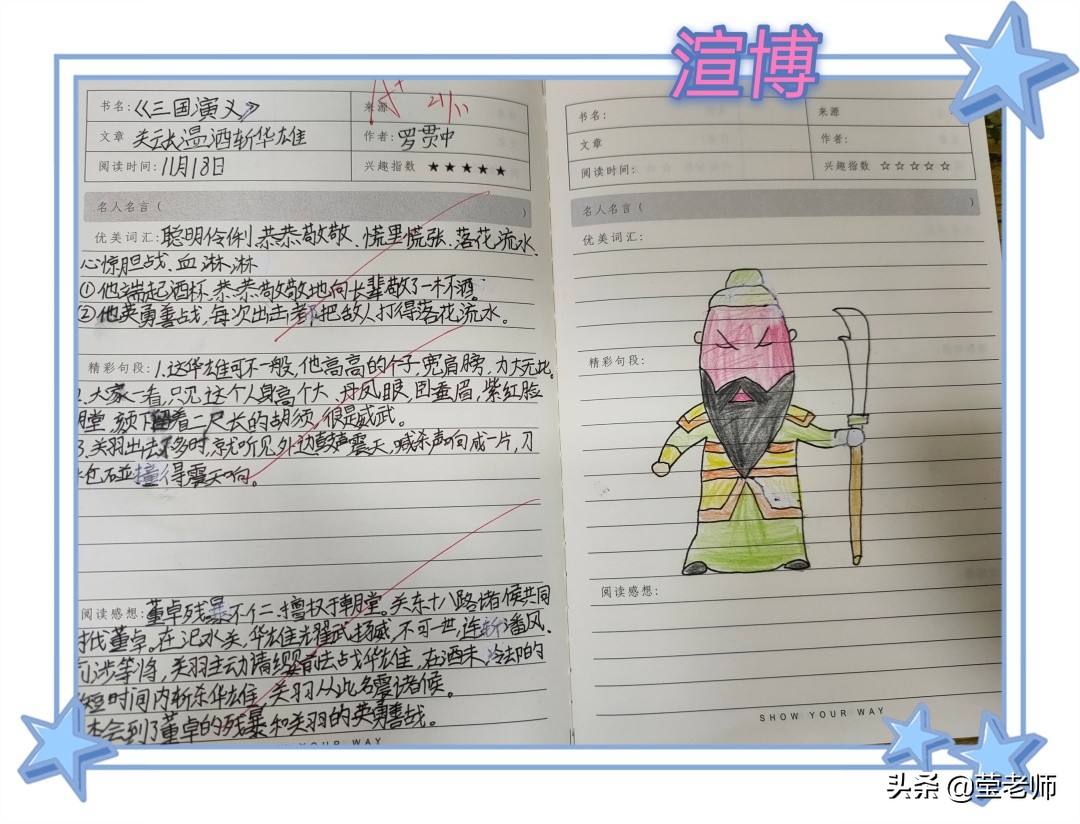 渲博
书名:《三国演义》
来源
A+ 21/11
文章 关云长温酒斩华雄
作者:罗贯中
阅读时间:11月18日
兴趣指数 ★★★★★
名人名言(
)
优美词汇:聪明伶俐、恭恭敬敬、慌里慌张、落花流水、
心惊胆战、血淋淋
①他端起酒杯,恭恭敬敬地向长辈敬了一杯酒。
②他英勇善战,每次出击都把敌人打得落花流水。
精彩句段:1.这华雄可不一般,他高高的个子,宽肩膀,力大无比。
2.大家一看,只见这个人身高个大、丹凤眼,卧蚕眉,紫红脸
膛,颏下留着二尺长的胡须,很是威武。
3.关羽出去不多时,就听见外边鼓声震天,喊杀声响成一片,刀
枪碰撞得震天响。
阅读感想:董卓残暴不仁、擅权于朝堂。关东十八路诸侯共同
讨伐董卓。在汜水关,华雄耀武扬威,不可一世,连斩潘凤、
涉等将,关羽主动请缨前去战华雄,在酒未冷却的
短时间内斩杀华雄,关羽从此名震诸侯。
体会到了董卓的残暴和关羽的英勇善战。
YOUR WAY
书名:
来源
文章
作者:
阅读时间:
兴趣指数 ☆☆☆☆☆
名人名言(
)
优美词汇:
精彩句段:
阅读感想:
SHOW YOUR WAY
头条 @莹老师